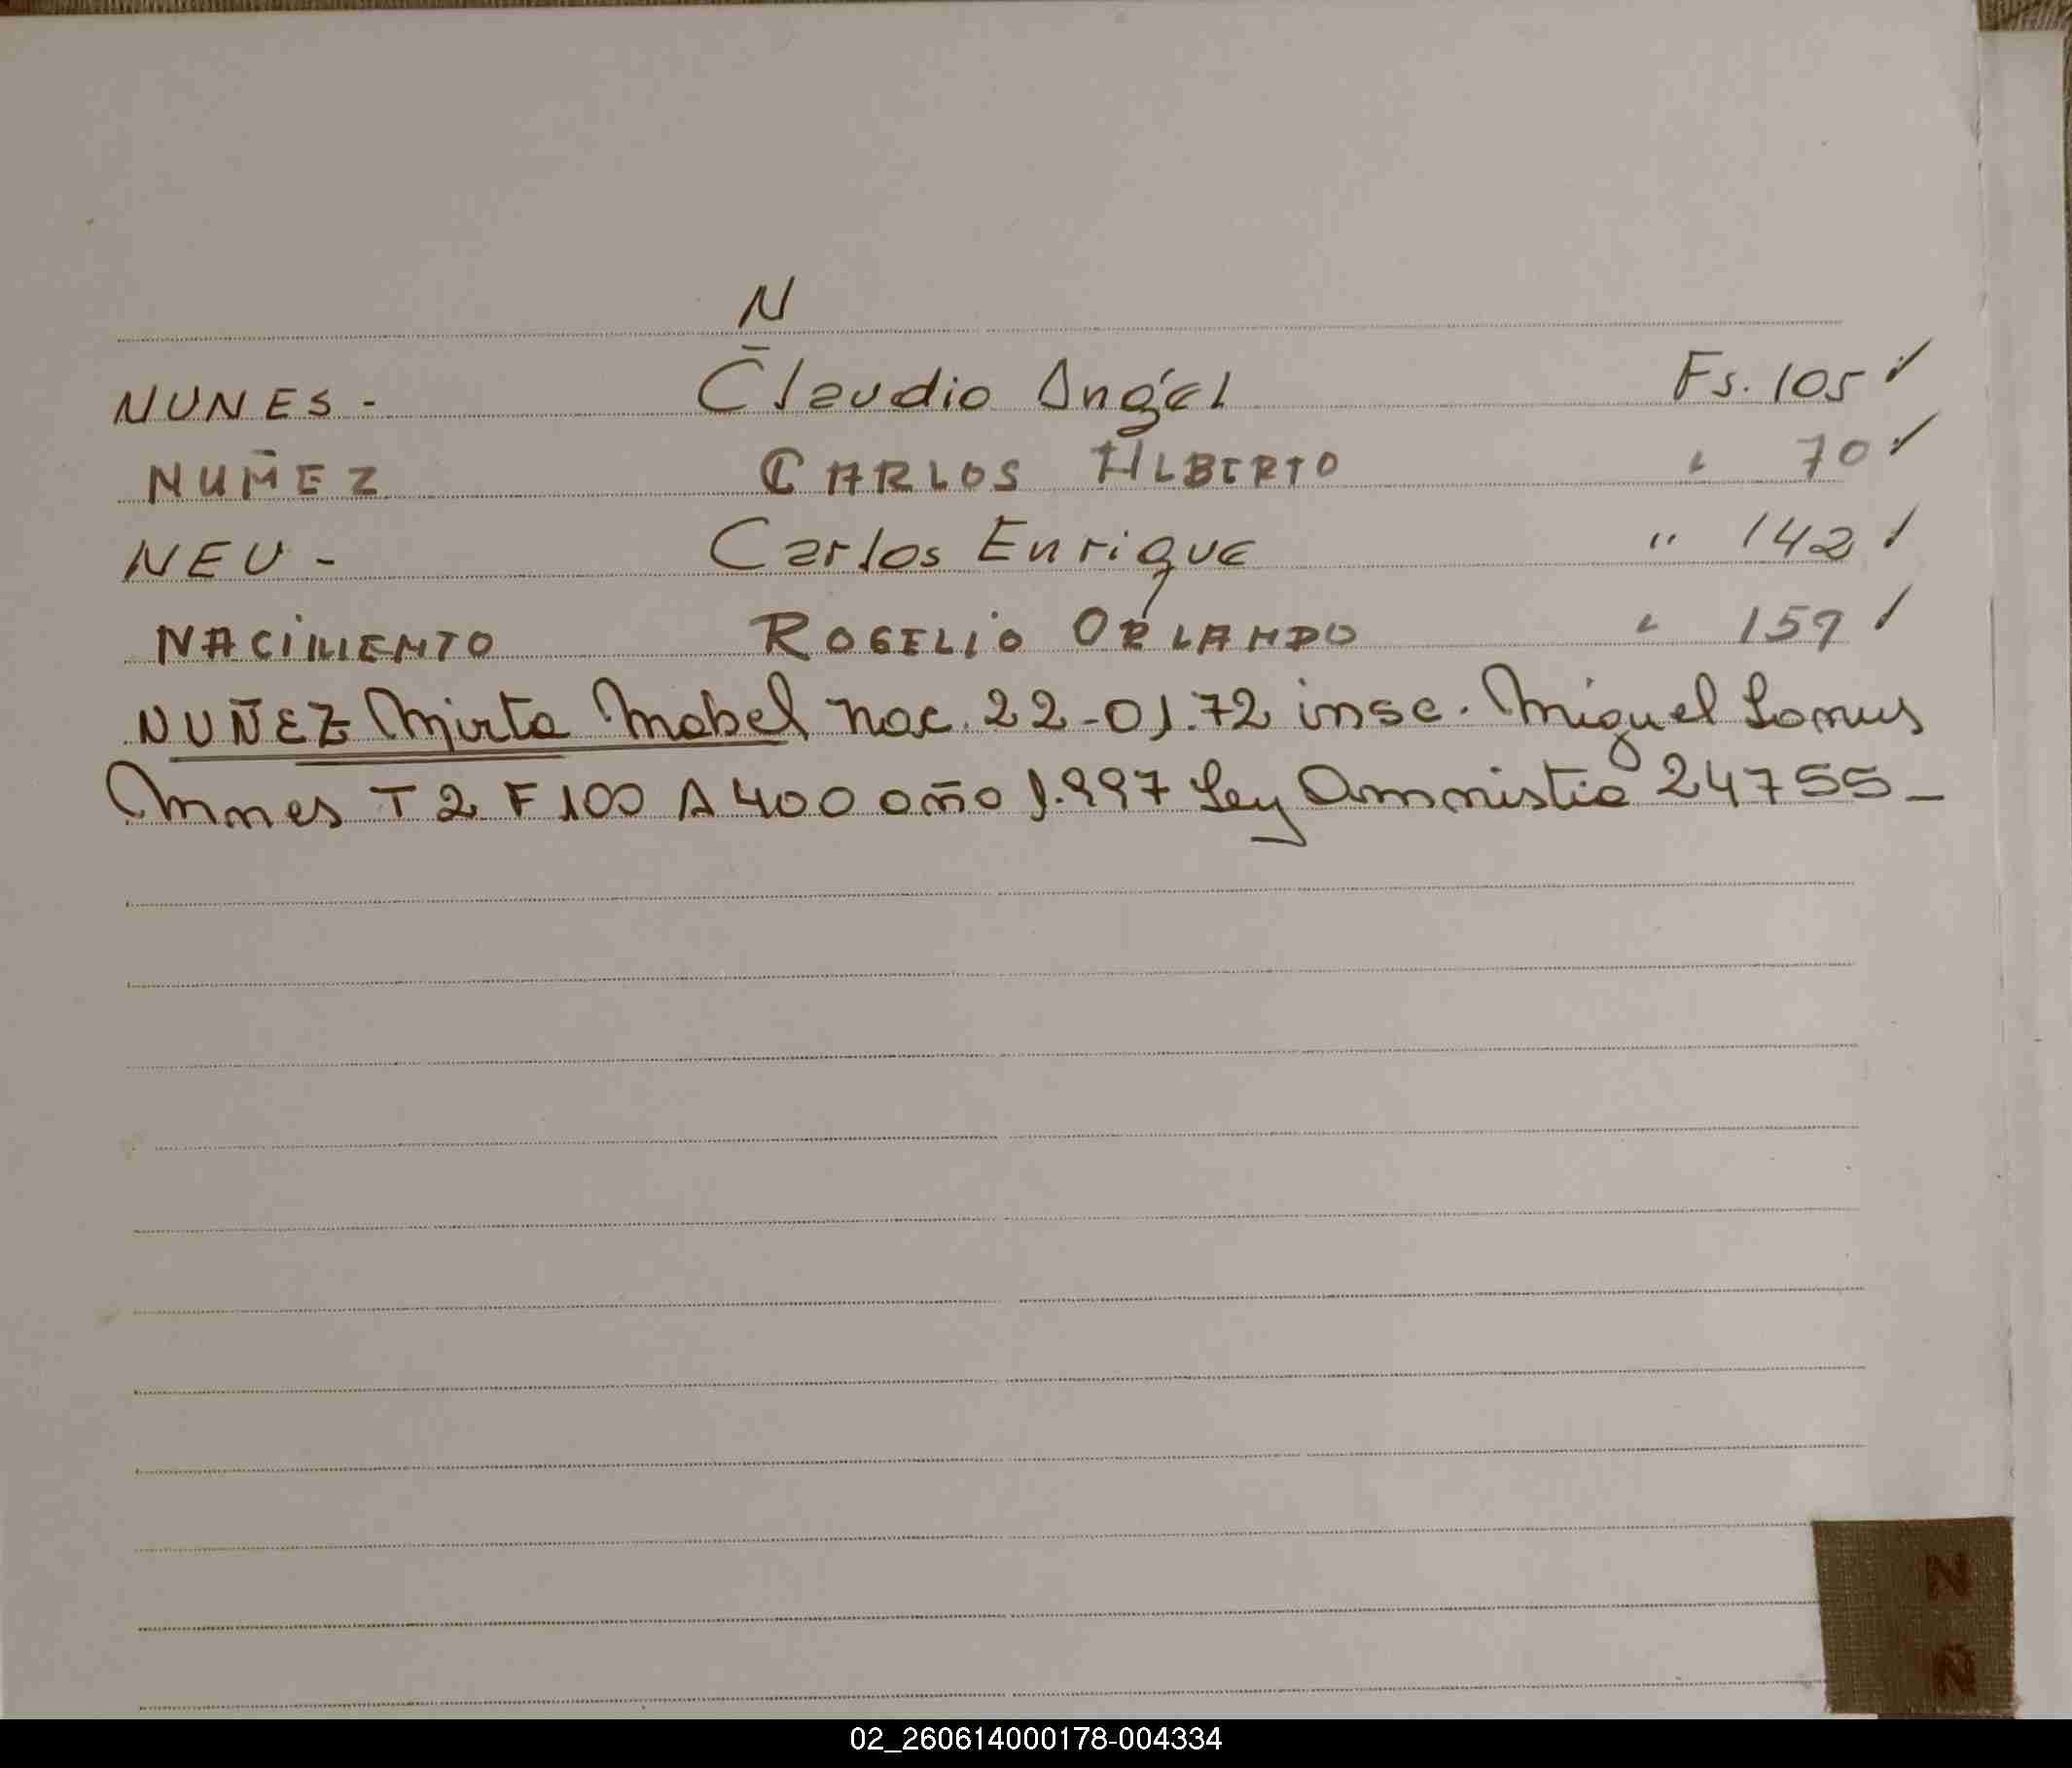 N
NUNES - Claudio Angel Fs. 105 ✓
NUÑEZ CARLOS ALBERTO " 70 ✓
NEU - Carlos Enrique " 142 ✓
NACIMIENTO ROGELIO ORLANDO " 159 ✓
NUÑEZ Mirta Mabel nac. 22-01.72 insc. Miguel Lanus
Mnes T 2 F 100 A 400 año 1.997 Ley Amnistia 24755 -
N
Ñ
02_260614000178-004334